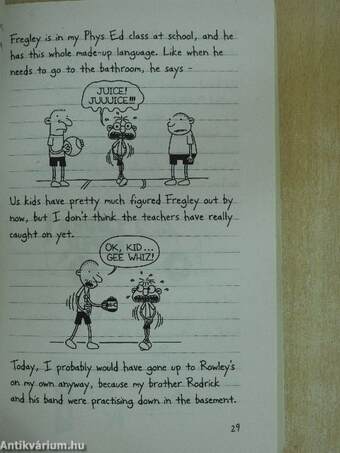 Fregley is in my Phys Ed class at school, and he
has this whole made-up language. Like when he
needs to go to the bathroom, he says -
JUICE!
JUUUICE!!!
Us kids have pretty much figured Fregley out by
now, but I don't think the teachers have really
caught on yet.
OK, KID...
GEE WHIZ!
Today, I probably would have gone up to Rowley's
on my own anyway, because my brother Rodrick
and his band were practising down in the basement.
29
Antikvárium.hu